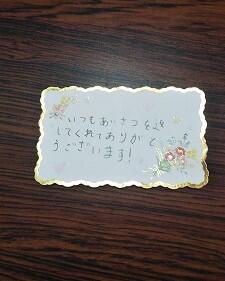 いつもあいさつを返
してくれてありがと
うございます!